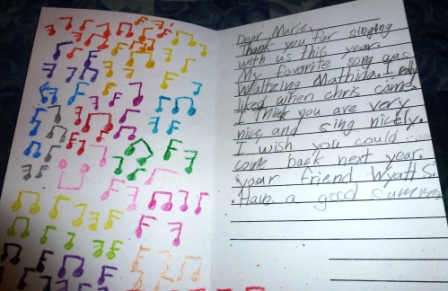 Dear Marie,
Thank you for singing
with us this year.
My favorite song was
Waltzing Mathida. I really
liked when chris came.
I think you are very
nice and sing nicely.
I wish you could
come back next year.
your friend Wyatt S.
Have a good summer